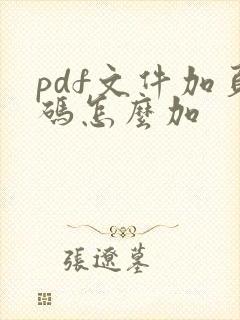 pdf文件加頁
碼怎麼加
張遼墓